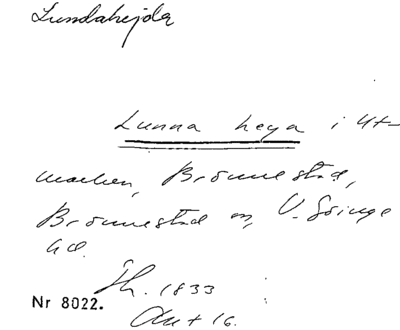 Lundahejda
Lunna heya i Ut-
marken, Brönnestad,
Brönnestad sn, V. Göinge
hd.
Sk. 1833
Nr 8022.
Akt 16.